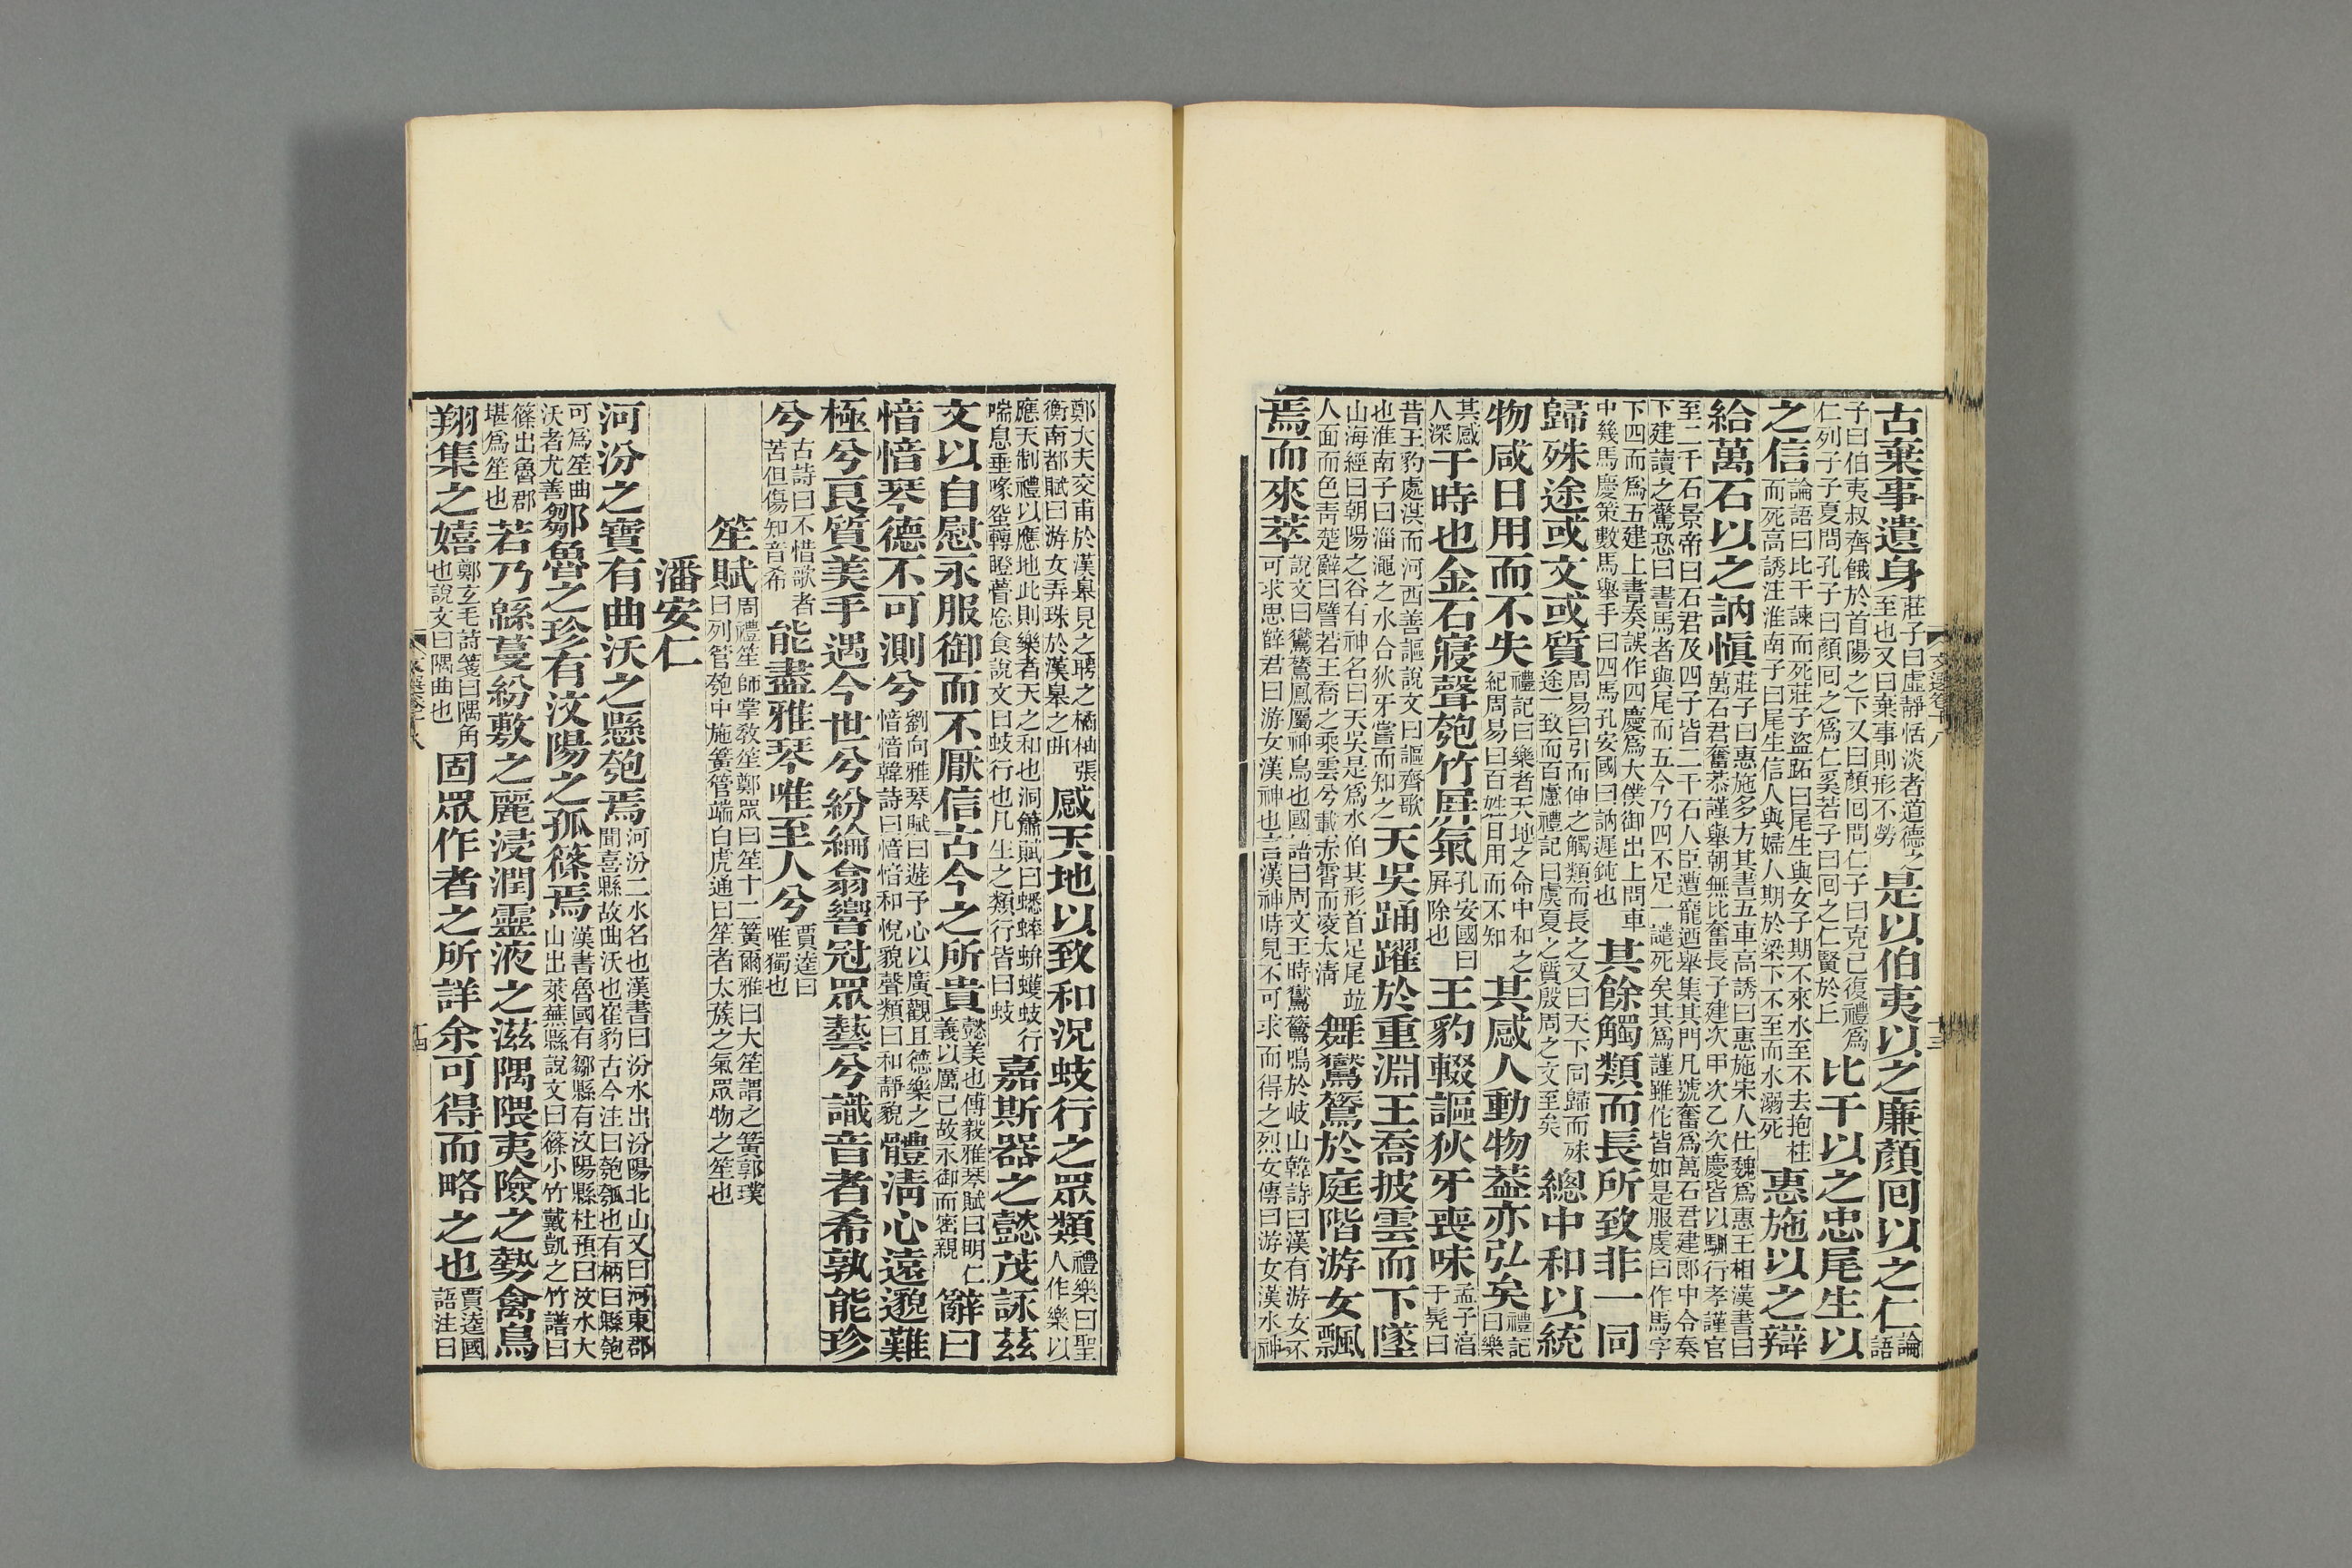 古棄事遺身莊子曰虛靜恬淡者道德之至也又曰棄事則形不勞是以伯夷以之廉顏回以之仁論語
子曰伯夷叔齊餓於首陽之下又曰顏回問仁子曰克己復禮爲仁列子子夏問孔子曰顏回之爲仁奚若子曰回之仁賢於上比干以之忠尾生以
之信論語曰比干諫而死莊子盜跖曰尾生與女子期不來水至不去抱柱而死高誘注淮南子曰尾生信人與婦人期於梁下不至而水溺死惠施以之辯
給萬石以之訥愼莊子曰惠施多方其書五車高誘曰惠施宋人仕魏爲惠王相漢書曰萬石君奮恭謹舉朝無比奮長子建次甲次乙次慶皆以馴行孝謹官
至二千石景帝曰石君及四子皆二千石人臣遭寵迺舉集其門凡號奮爲萬石君建郎中令奏下建讀之驚恐曰書馬者與尾而五今乃四不足一譴死矣其爲謹雖佗皆如是服虔曰作馬字
下四而爲五建上書奏誤作四慶爲大僕御出上問車中幾馬慶策數馬舉手曰四馬孔安國曰訥遲鈍也其餘觸類而長所致非一同
歸殊途或文或質周易曰引而伸之觸類而長之又曰天下同歸而殊途一致而百慮禮記曰虞夏之質殷周之文至矣總中和以統
物咸日用而不失禮記曰樂者天地之命中和之紀周易曰百姓日用而不知其感人動物蓋亦弘矣禮記曰樂
其感人深于時也金石寢聲匏竹屏氣孔安國曰屏除也王豹輟謳狄牙喪味孟子淳于髡曰
昔王豹處淇而河西善謳說文曰謳齊歌也淮南子曰淄澠之水合狄牙嘗而知之天吳踊躍於重淵王喬披雲而下墜
山海經曰朝陽之谷有神名曰天吳是爲水伯其形首足尾竝人面而色青楚辭曰譬若王喬之乘雲兮載赤霄而凌太清舞鸑鷟於庭階游女飄
焉而來萃說文曰鸑鷟鳳屬神鳥也國語曰周文王時鸑鷟鳴於岐山韓詩曰漢有游女不可求思薛君曰游女漢神也言漢神時見不可求而得之烈女傳曰游女漢水神
文選卷十八
十三
鄭大夫交甫於漢皋見之聘之橘柚張衡南都賦曰游女弄珠於漢皋之曲感天地以致和況蚑行之眾類禮樂曰聖人作樂以
應天制禮以應地此則樂者天之和也洞簫賦曰蟋蟀蚸蠖蚑行喘息垂喙𧊿轉瞪瞢忘食說文曰蚑行也凡生之類行皆曰蚑嘉斯器之懿茂詠茲
文以自慰永服御而不厭信古今之所貴懿美也傅毅雅琴賦曰明仁義以厲己故永御而密親辭曰
愔愔琴德不可測兮劉向雅琴賦曰遊予心以廣觀且德樂之愔愔韓詩曰愔愔和悅貌聲類曰和靜貌體清心遠邈難
極兮良質美手遇今世兮紛綸翕響冠眾藝兮識音者希孰能珍
兮古詩曰不惜歌者苦但傷知音希能盡雅琴唯至人兮賈逵曰唯獨也
笙賦周禮笙師掌教笙鄭眾曰笙十二簧爾雅曰大笙謂之簧郭璞曰列管匏中施簧管端白虎通曰笙者太蔟之氣眾物之笙也
潘安仁
河汾之寶有曲沃之懸匏焉河汾二水名也漢書曰汾水出汾陽北山又曰河東郡聞喜縣故曲沃也崔豹古今注曰匏瓠也有柄曰縣匏
可爲笙曲沃者尤善鄒魯之珍有汶陽之孤篠焉漢書魯國有鄒縣有汶陽縣杜預曰汶水大山出萊蕪縣說文曰篠小竹戴凱之竹譜曰
篠出魯郡堪爲笙也若乃緜蔓紛敷之麗浸潤靈液之滋隅隈夷險之勢禽鳥
翔集之嬉鄭玄毛詩箋曰隅角也說文曰隈曲也固眾作者之所詳余可得而略之也賈逵國語注曰
文選卷十八
十四